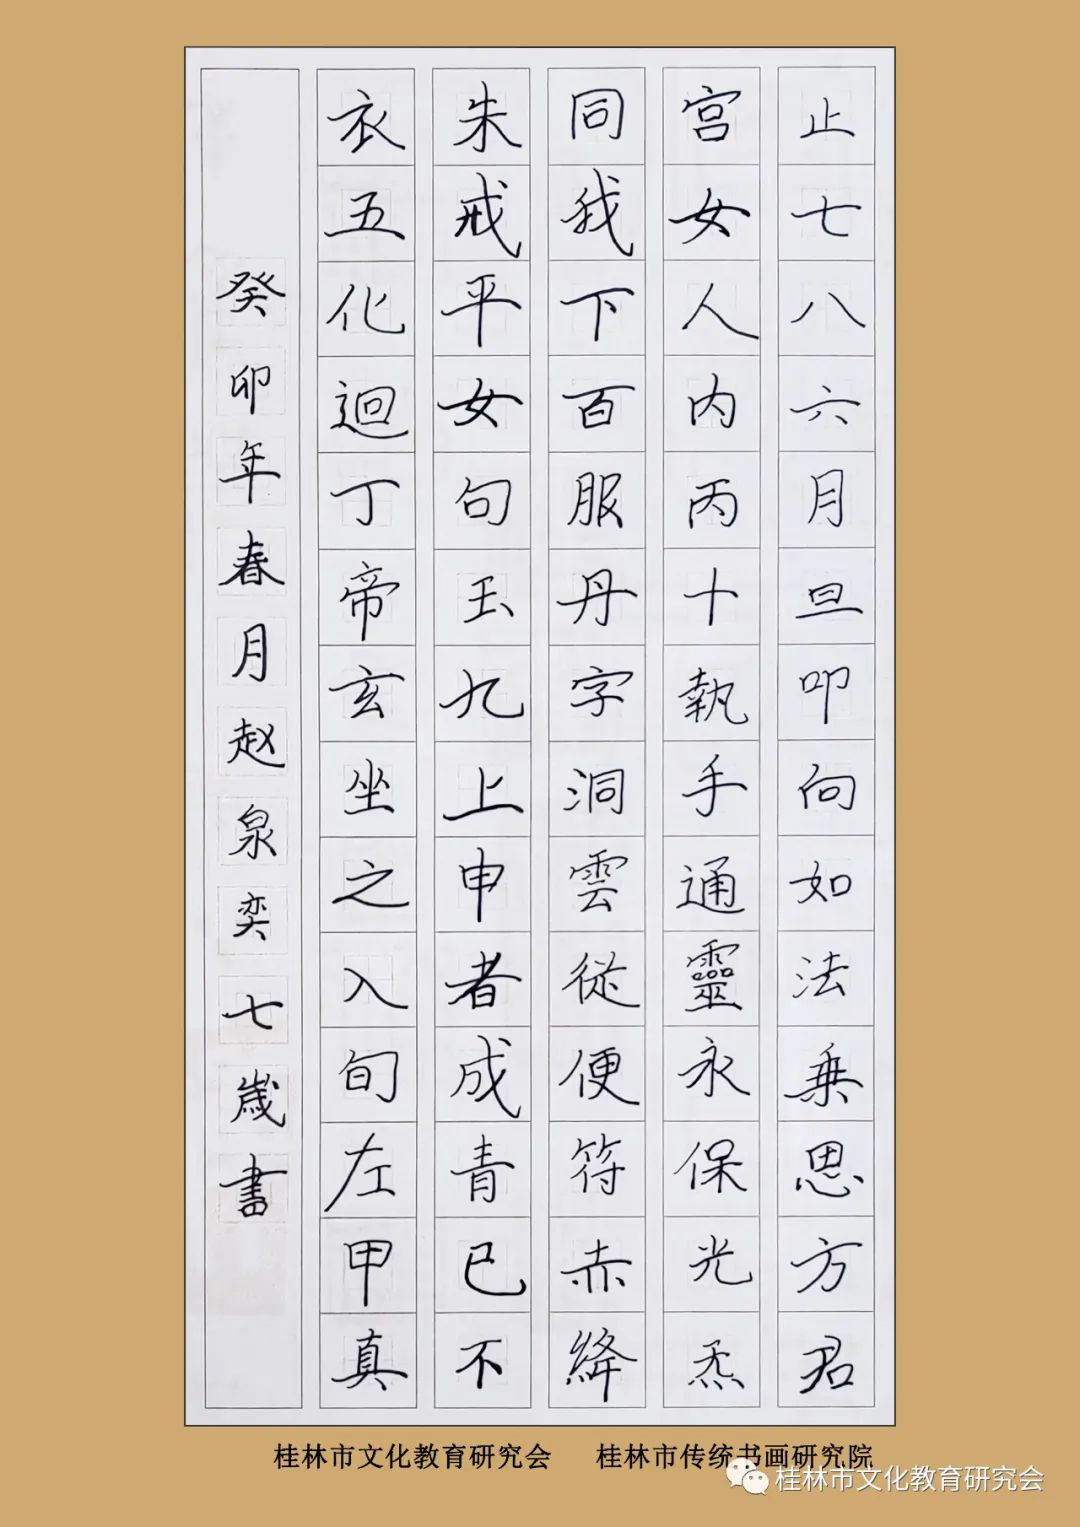 止七八六月旦叩向如法乗思方君
宫女人内丙十執手通靈永保光炁
同我下百服丹字洞雲從便符赤絳
朱戒平女句玉九上申者成青已不
衣五化迴丁帝玄坐之入旬左甲真
癸卯年春月赵泉奕七歲書
桂林市文化教育研究会 桂林市传统书画研究院
桂林市文化教育研究会